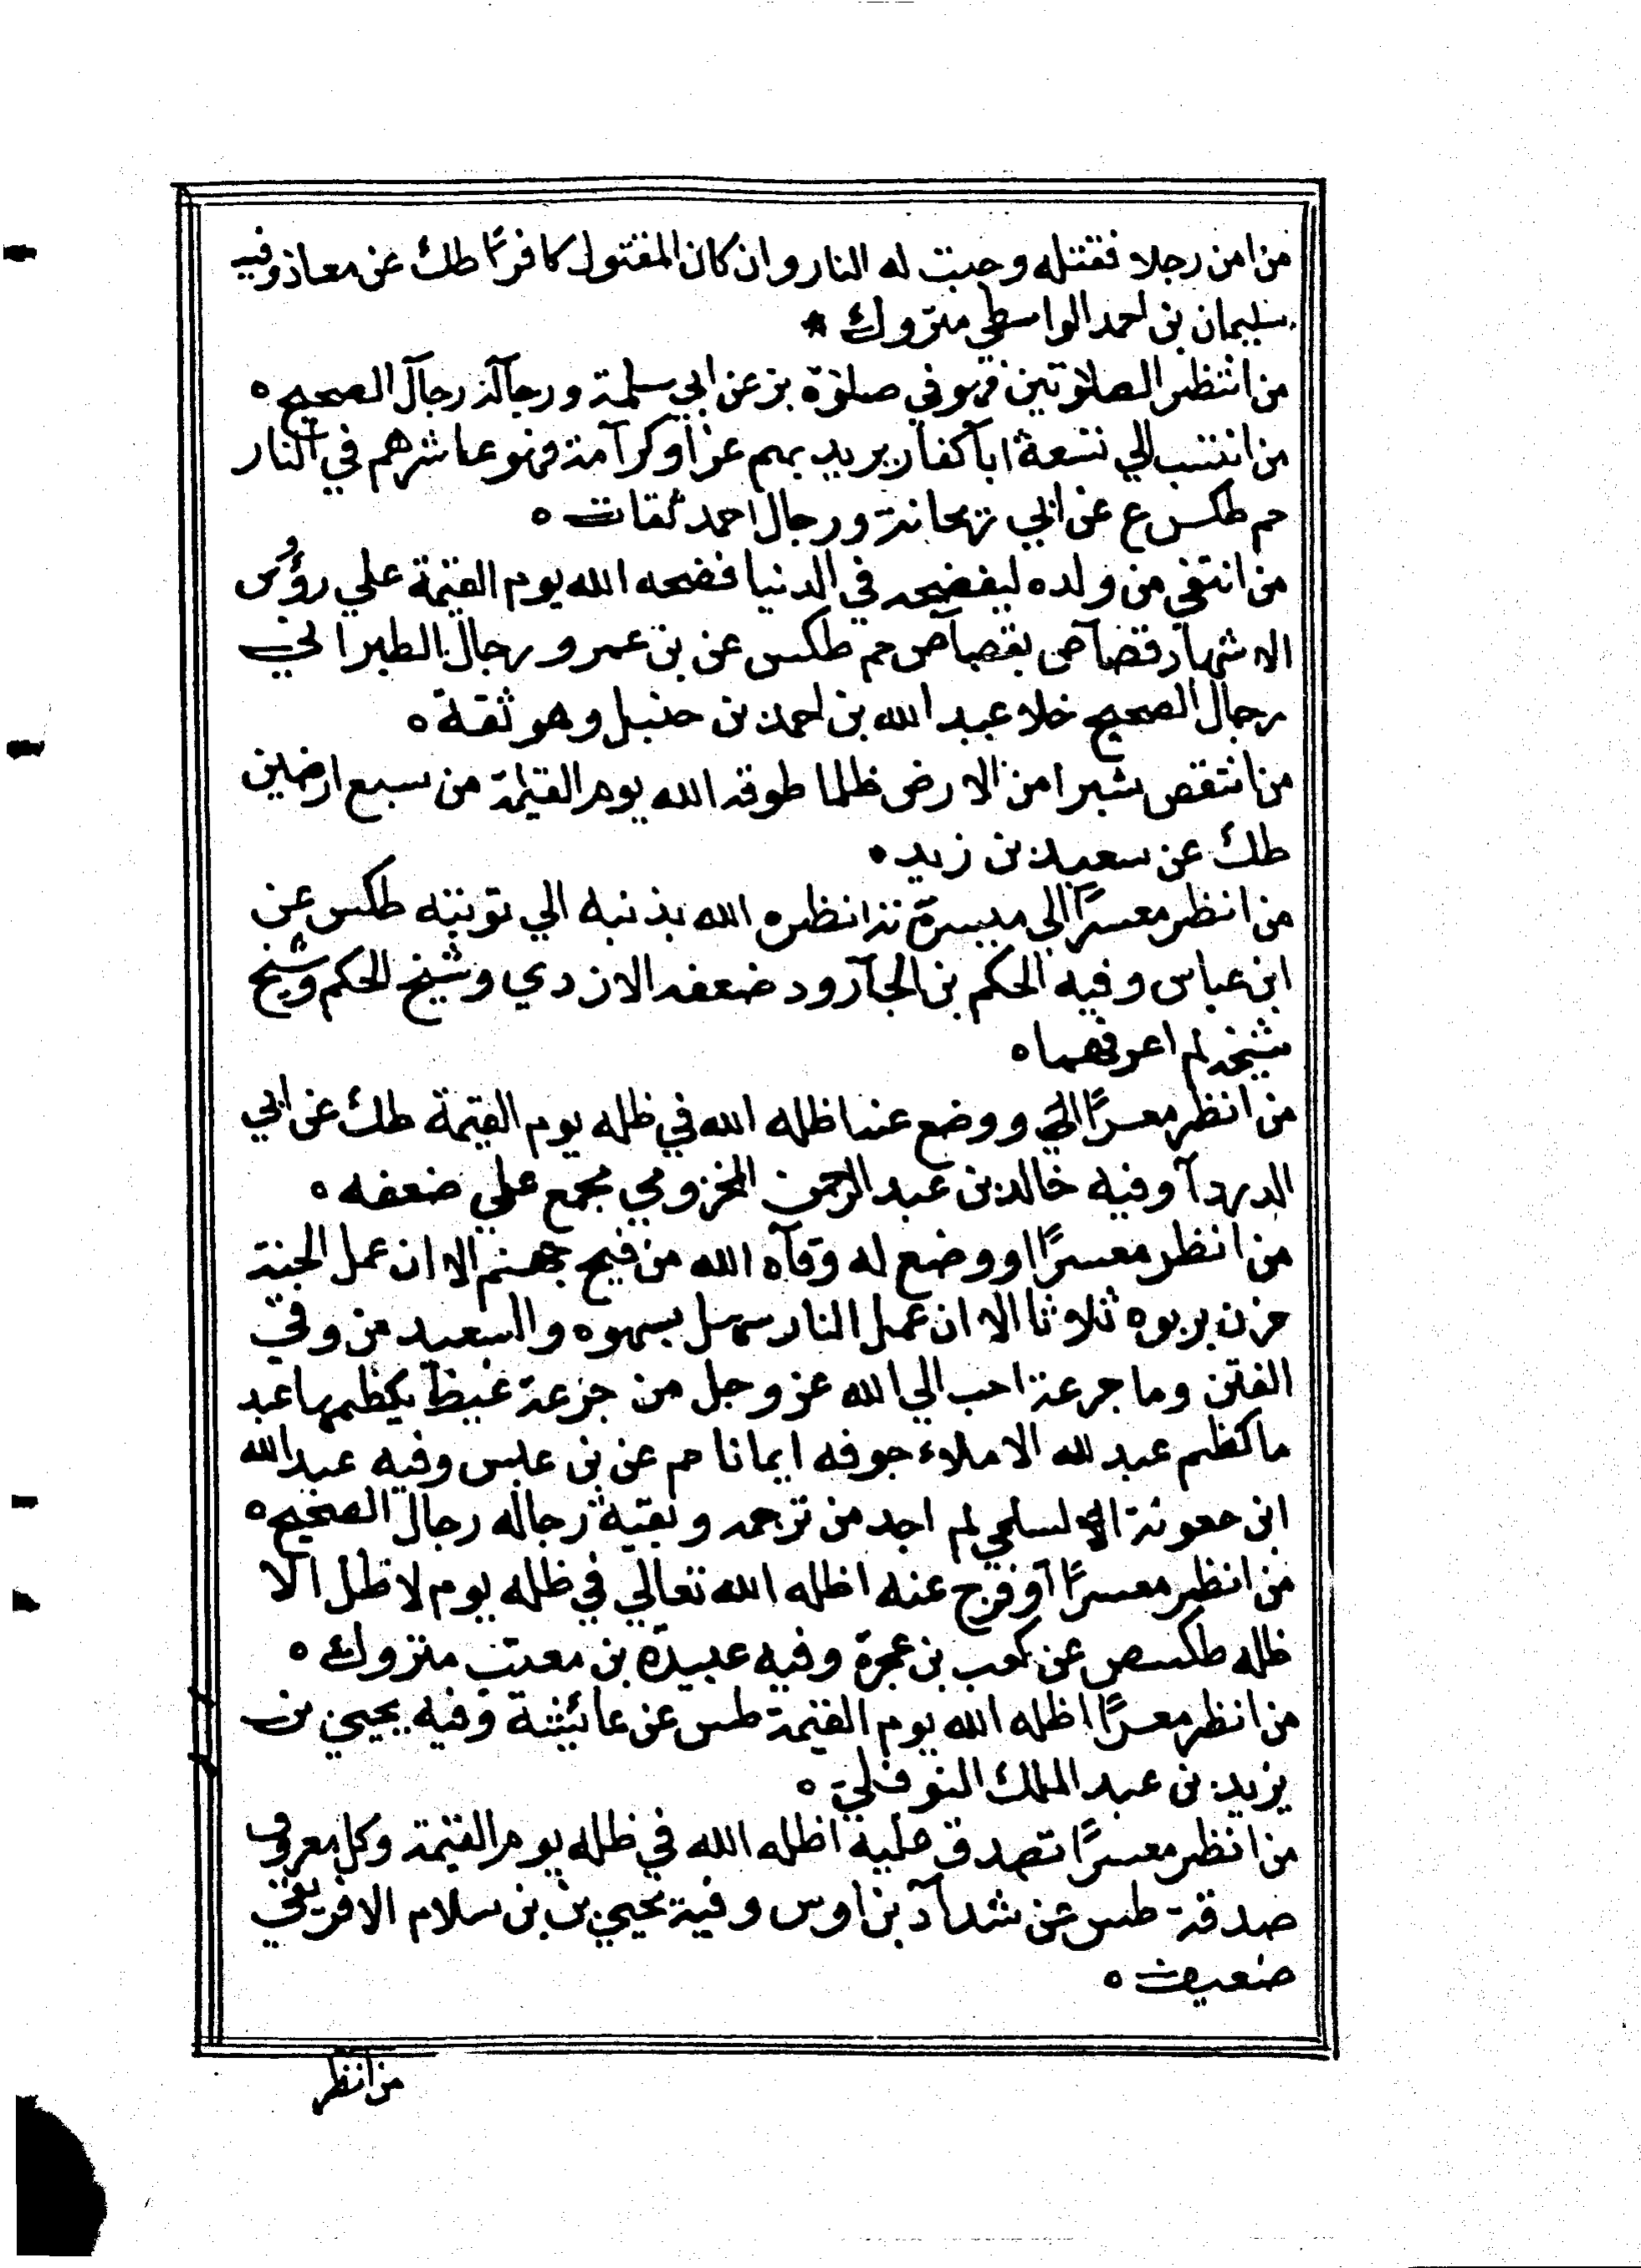 من امن رجلا فقتله وجبت له النار وان كان المقتول كافرًا طك عن معاذ وفيه
سليمان بن احمد الواسطي متروك *
من انتظر الصلاوتين فهو في صلوة بز عن ابي سلمة ورجاله رجال الصحيح ه
من انتسب الي تسعة ابآ كفار يريد بهم عزا وكرآمة فهو عاشرهم في النار
حم طكس ع عن ابي ريحانة ورجال احمد ثقات ه
من انتفي من ولده ليفضحه في الدنيا فضحه الله يوم القيمة علي رؤس
الاشهاد قصآص بقصآص حم طكس عن بن عمر ورجال الطبراني
رجال الصحيح خلا عبد الله بن احمد بن حنبل وهو ثقة ه
من انتقص شبرا من الارض ظلما طوقه الله يوم القيمة من سبع ارضين
طك عن سعيد بن زيد ه
من انظر معسرًا الي ميسرة انظره الله بذنبه الي توبته طكس عن
ابن عباس وفيه الحكم بن الجآرود ضعفه الازدي وشيخ الحكم وشيخ
شيخه لم اعرفهما ه
من انظر معسرًا ووضع عنه اظله الله في ظله يوم القيمة طك عن ابي
الدردآ وفيه خالد بن عبد الرحمن المخزومي مجمع علي ضعفه ه
من انظر معسرًا او وضع له وقآه الله من فيح جهنم الا ان عمل الجنة
حزن بربوه ثلاثا الا ان عمل النار سهل بسهوه والسعيد من وقي
الفتن وما جرعة احب الي الله عز وجل من جرعة غيظ يكظمها عبد
ما كظم عبد لله الا ملاء جوفه ايمانا حم عن بن عباس وفيه عبد الله
ابن جعونة السلمي لم اجد من ترجمه وبقية رجاله رجال الصحيح ه
من انظر معسرًا او فرج عنه اظله الله تعالي في ظله يوم لا ظل الا
ظله طكسص عن كعب بن عجرة وفيه عبيدة بن معتب متروك ه
من انظر معسرًا اظله الله يوم القيمة طس عن عائشة وفيه يحيي بن
يزيد بن عبد الملك النوفلي ه
من انظر معسرًا تصدق عليه اظله الله في ظله يوم القيمة وكل معروف
صدقة طس عن شدآد بن اوس وفيه يحيي بن بن سلام الافريقي
ضعيف ه
من انظر